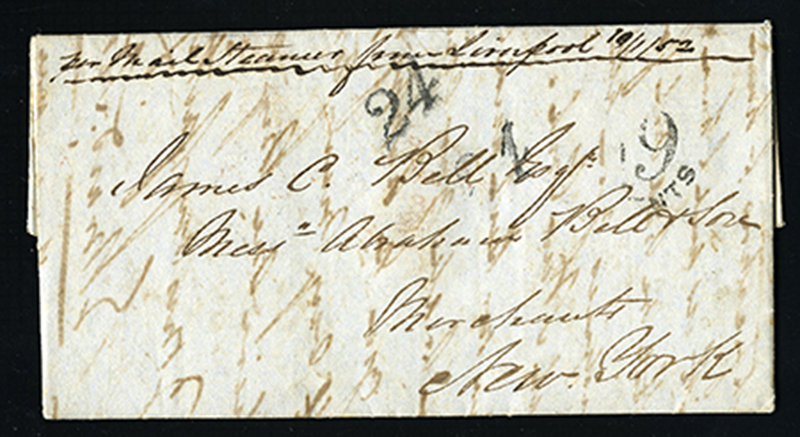 per Mail Steamer from Liverpool 10/1/52
24
19
CTS
James C. Bell Esqr.
Messrs Abraham Bell & Son
Merchants
New York